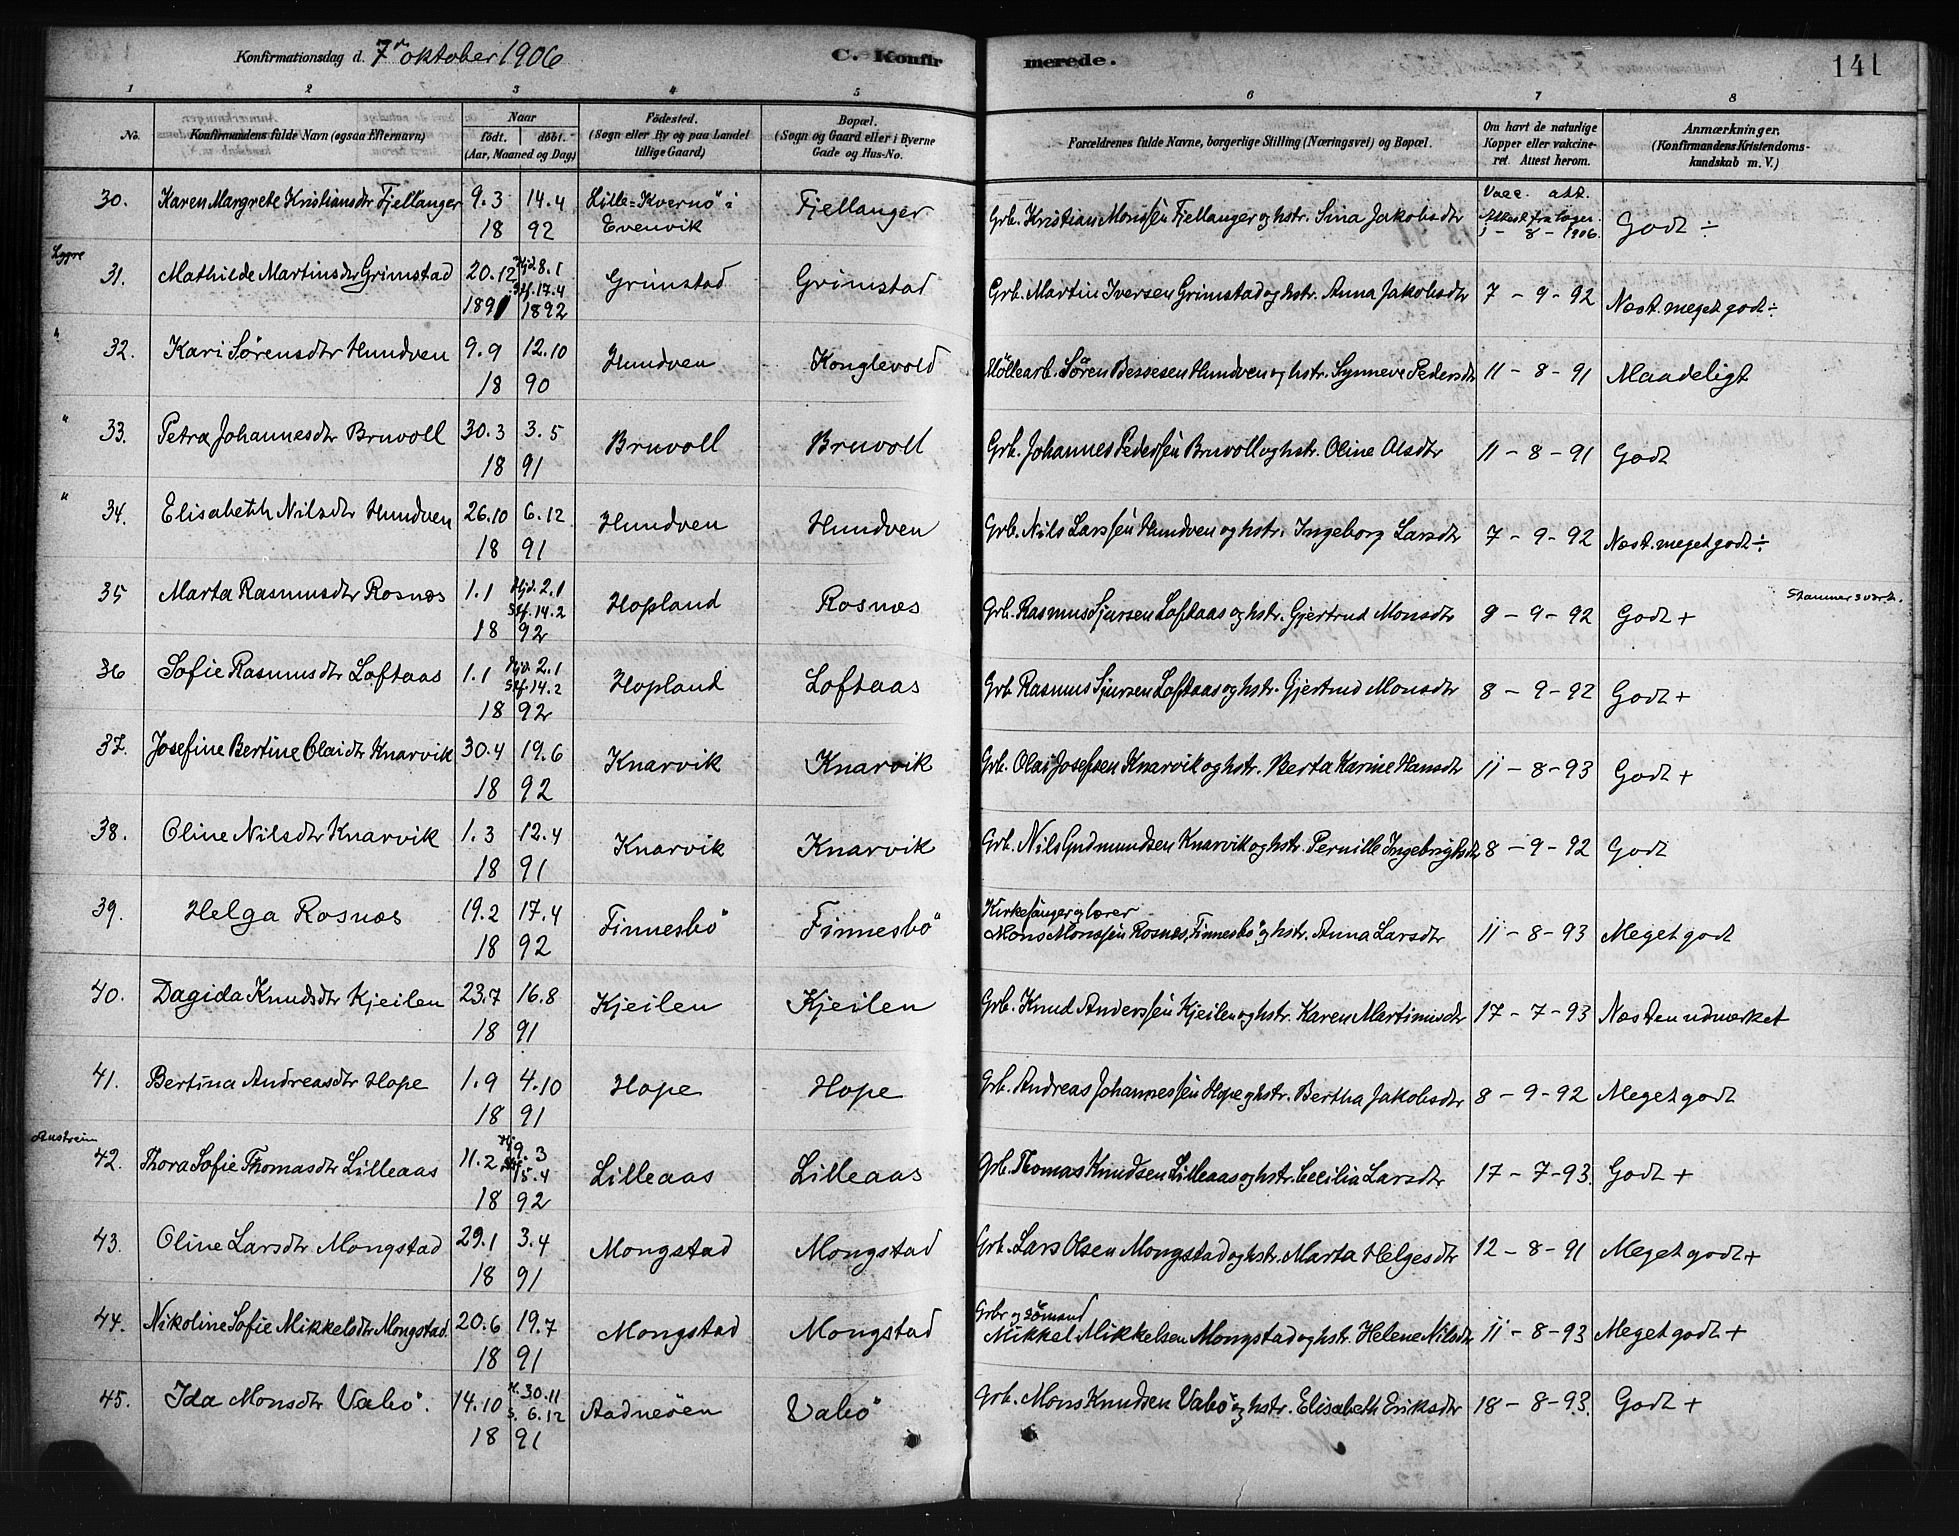 Konfirmationsdag d. 7de oktober 1906 C. Konfirmerede. 141
1 2 3 4 5 6 7 8
No. Konfirmandens fulde Navn (ogsaa Efternavn) Naar født. døbt. (Aar, Maaned og Dag) Fødested. (Sogn eller By og paa Landet tillige Gaard) Bopæl. (Sogn og Gaard eller i Byerne Gade og Hus-No. Forældrenes fulde Navne, borgerlige Stilling (Næringsvei) og Bopæl. Om havt de naturlige Kopper eller vakcineret. Attest herom. Anmærkninger. (Konfirmandens Kristendomskundskab m. V.)
30. Karen Margrete Kristiansdtr Fjellanger 9.3 14.4 Lille-Kvernö i Fjellanger Grb. Kristian Monssen Fjellanger og hstr. Sina Jakobsdtr Vacc. att. Attest fra læger. Godt ÷
18 92 Evenvik 1 - 8 - 1906.
Lygre
31. Mathilde Martinsdtr Grimstad 20.12 Hjd. 8.1 Grimstad Grimstad Grb. Martin Iversen Grimstad og hstr. Anna Jakobsdtr 7 - 9 - 92 Næst. meget godt ÷
Stf. 17.4
1891 1892
" 32. Kari Sørensdtr Hundven 9.9 12.10 Hundven Konglevold Möllearb. Sören Bessesen Hundven og hstr. Synneve Pedersdtr 11 - 8 - 91 Maadeligt
18 90
" 33. Petra Johannesdtr Bruvoll 30.3 3.5 Bruvoll Bruvoll Grb. Johannes Pederssen Bruvoll og hstr. Oline Olsdtr 11 - 8 - 91 Godt
18 91
" 34. Elisabeth Nilsdtr Hundven 26.10 6.12 Hundven Hundven Grb. Nils Larssen Hundven og hstr. Ingeborg Larsdtr 7 - 9 - 92 Næst. meget godt ÷
18 91
35 Marta Rasmusdtr Rosnæs 1.1 Hjd. 2.1 Hopland Rosnæs Grb. Rasmus Sjursen Loftaas og hstr. Gjertrud Monsdtr 9 - 9 - 92 Godt + Stammer svært.
Stf. 14.2
18 92
36 Sofie Rasmusdtr Loftaas 1.1 Hjd. 2.1 Hopland Loftaas Grb. Rasmus Sjursen Loftaas og hstr. Gjertrud Monsdtr 8 - 9 - 92 Godt +
Stf. 14.2
18 92
37. Josefine Bertine Olaidtr Knarvik 30.4 19.6 Knarvik Knarvik Grb. Olai Josefsen Knarvik og hstr. Berta Karine Hansdtr 11 - 8 - 93 Godt +
18 92
38. Oline Nilsdtr Knarvik 1.3 12.4 Knarvik Knarvik Grb. Nils Gudmundsen Knarvik og hstr. Pernille Ingebrigtsdtr 8 - 9 - 92 Godt
18 91
39. Helga Rosnæs 19.2 17.4 Finnesbö Finnesbö Kirkesanger og lærer
Mons Monssen Rosnæs, Finnesbö og hstr. Anna Larsdtr 11 - 8 - 93 Meget godt
18 92
40. Dagida Knudsdtr Kjeilen 23.7 16.8 Kjeilen Kjeilen Grb. Knud Anderssen Kjeilen og hstr. Karen Martinusdtr 17 - 7 - 93 Næsten udmærket
18 91
41. Bertina Andreasdtr Hope 1.9 4.10 Hope Hope Grb. Andreas Johannessen Hope og hstr. Bertha Jakobsdtr 8 - 9 - 92 Meget godt
18 91
Austreim
42. Thora Sofie Thomasdtr Lilleaas 11.2 Hj. 9.3 Lilleaas Lilleaas Grb. Thomas Knudsen Lilleaas og hstr. Cecilia Larsdtr 17 - 7 - 93. Godt +
Stf. 15.4
18 92
43. Oline Larsdtr Mongstad 29.1 3.4 Mongstad Mongstad Grb. Lars Olsen Mongstad og hstr. Marta Helgesdtr 12 - 8 - 91 Meget godt +
18 91
44. Nikoline Sofie Mikkelsdtr Mongstad. 20.6 19.7 Mongstad Mongstad Grbr og sömand
Mikkel Mikkelsen Mongstad og hstr. Helene Nilsdtr 11 - 8 - 93 Meget godt +
18 91
45. Ida Monsdtr Vabö. 14.10 H. 30.11 Aadneöen Vabö Grb. Mons Knudsen Vabö og hstr. Elisabeth Eriksdtr 18 - 8 - 93. Godt +
S. 6.12
18 91